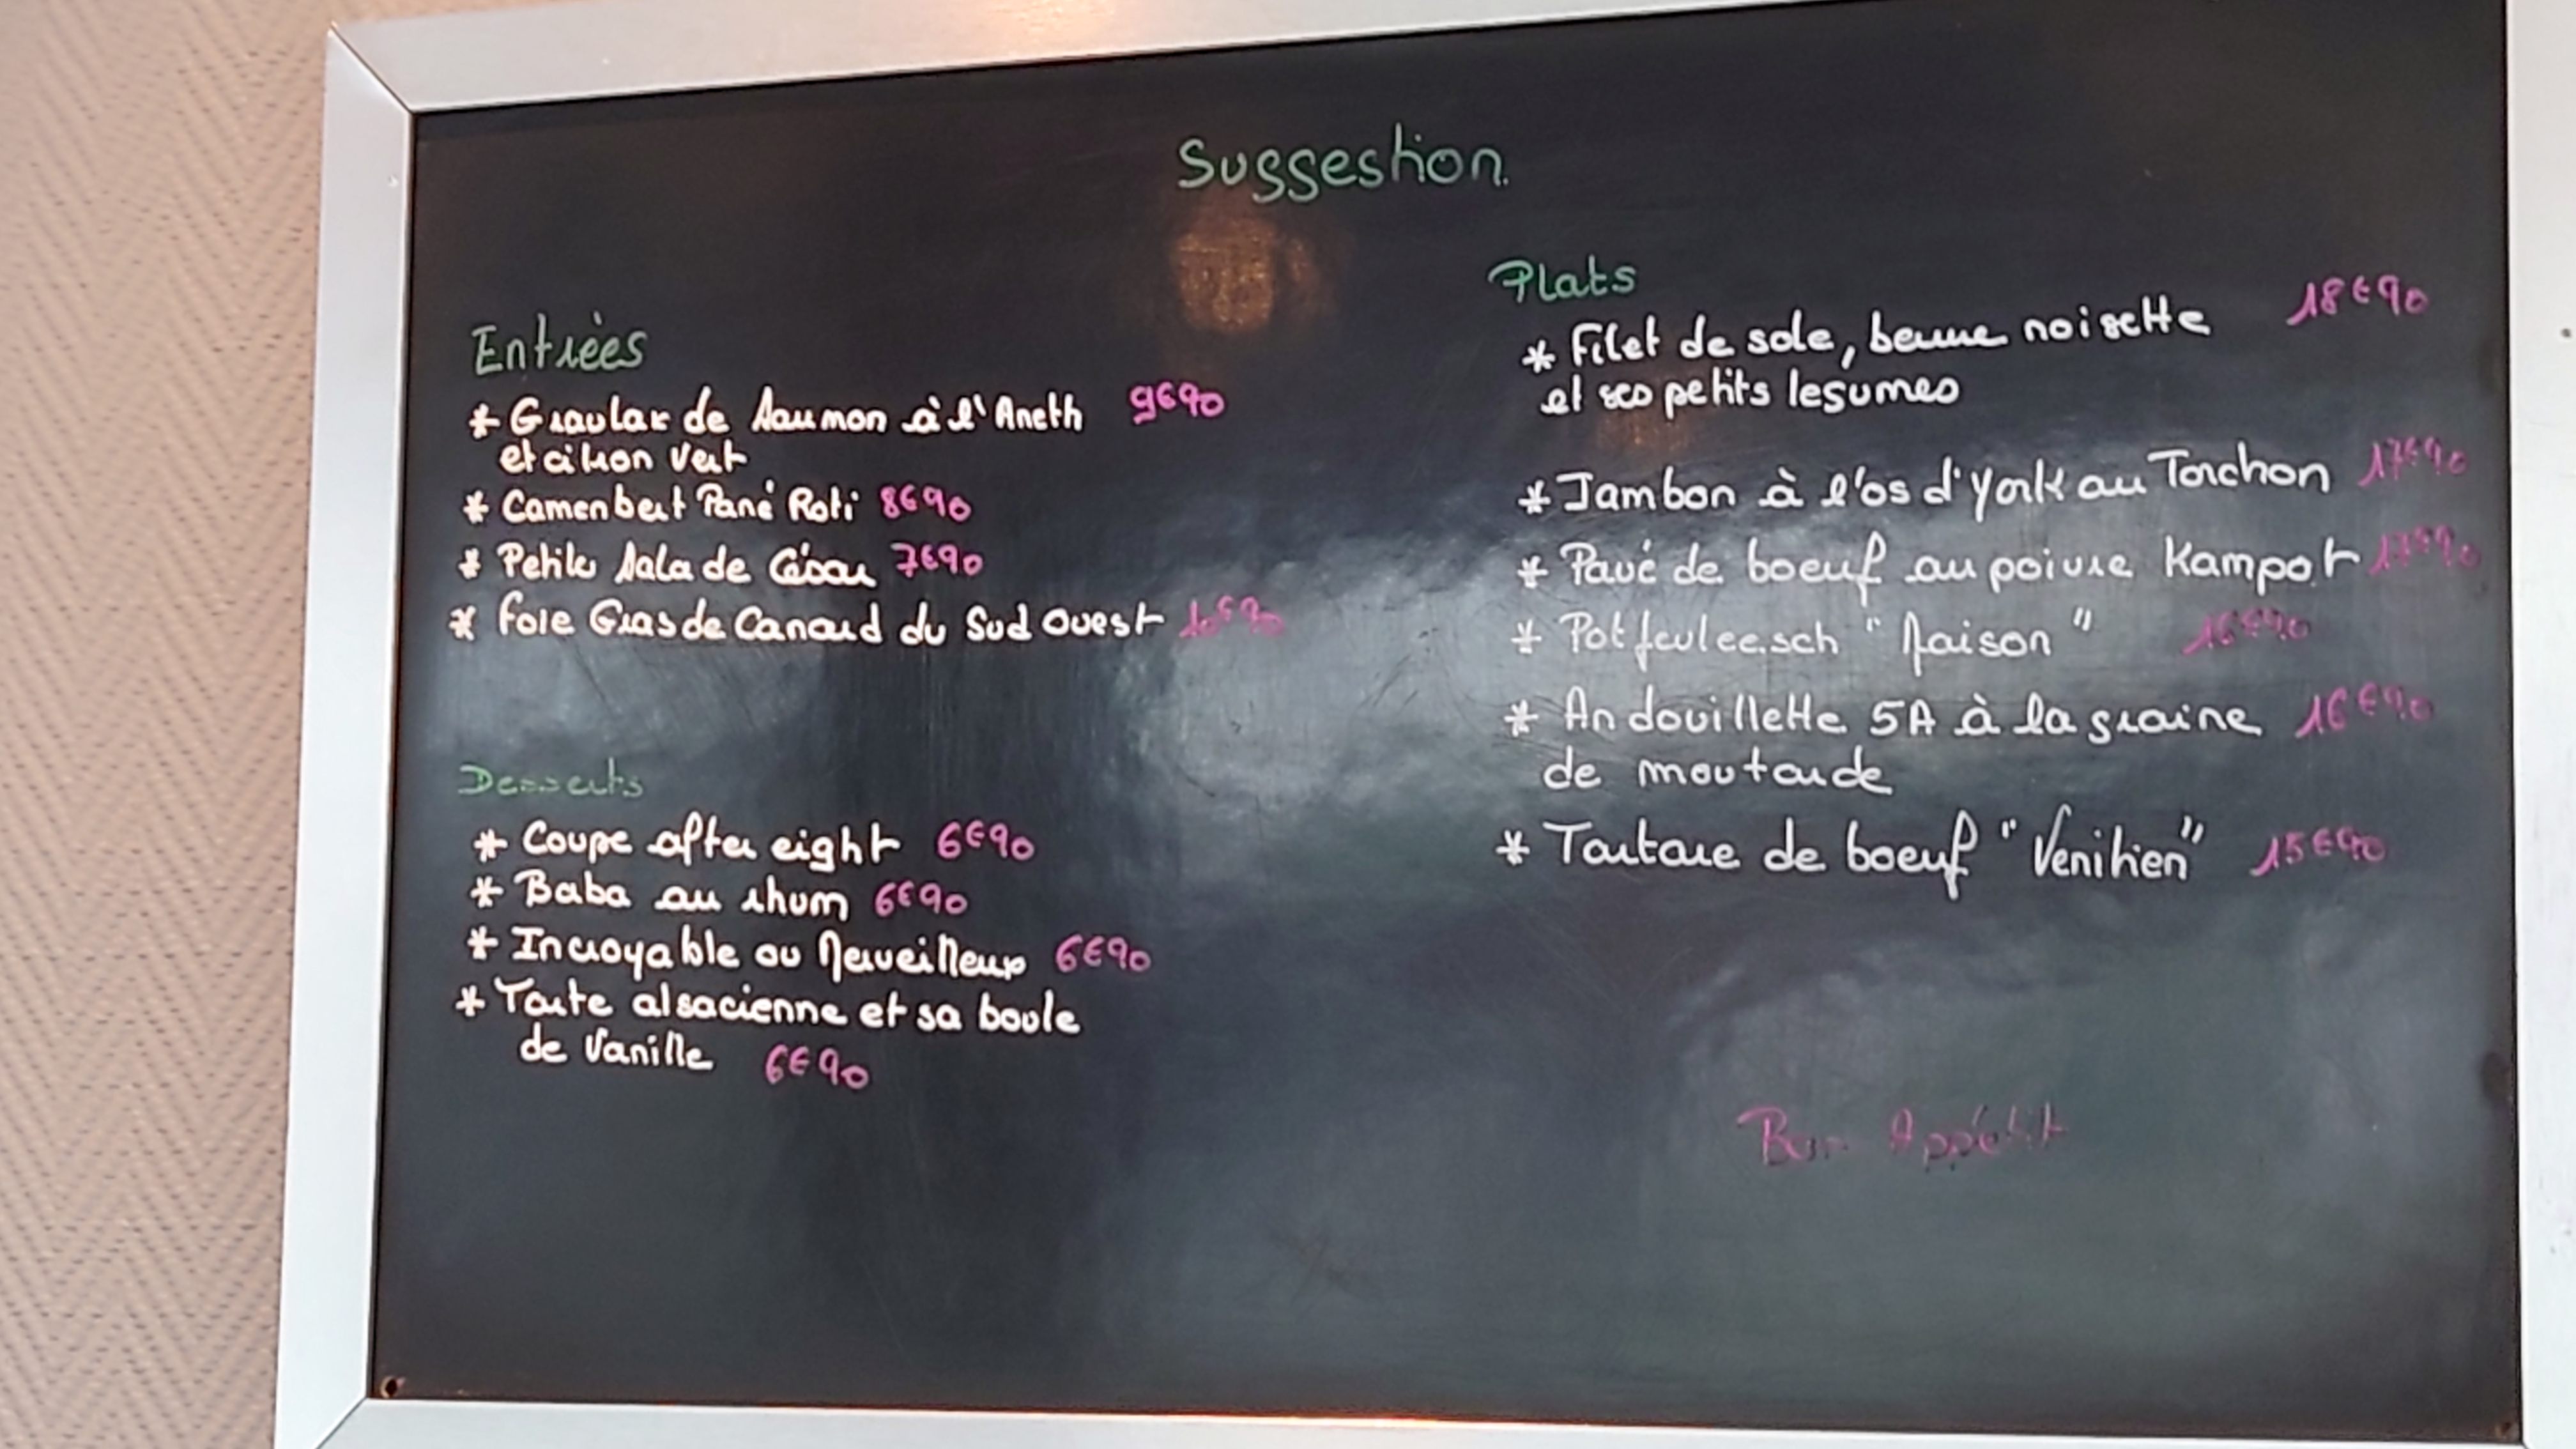 Suggestion
Entrées
* Gravlax de Saumon à l'Aneth 9€90
et citron vert
* Camenbert Pané Roti 8€90
* Petite Salade César 7€90
* Foie Gras de Canard du Sud Ouest 10€90
Desserts
* Coupe after eight 6€90
* Baba au rhum 6€90
* Incroyable ou Merveilleux 6€90
* Tarte alsacienne et sa boule
de Vanille 6€90
Plats
* Filet de sole, beurre noisette 18€90
et ses petits legumes
* Jambon à l'os d'York au Torchon 17€90
* Pavé de boeuf au poivre Kampot 17€90
* Potjevleesch "Maison" 16€90
* Andouillette 5A à la graine 16€90
de moutarde
* Tartare de boeuf "Venitien" 15€90
Bon Appétit